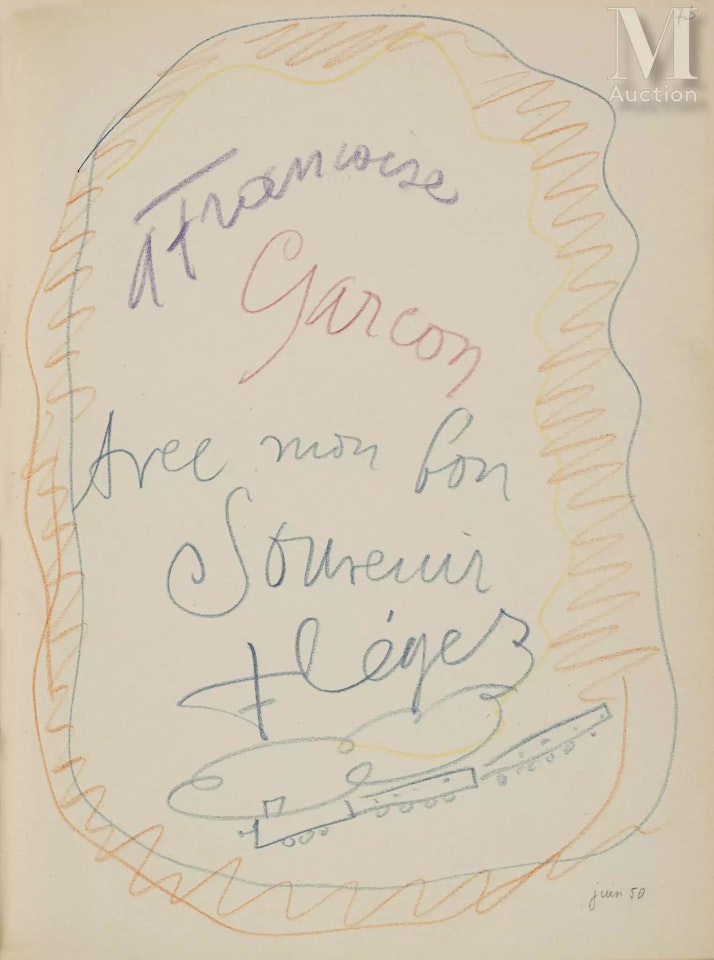 M
Auction
A Françoise
Garcon
Avec mon bon
Souvenir
F Léger
juin 50